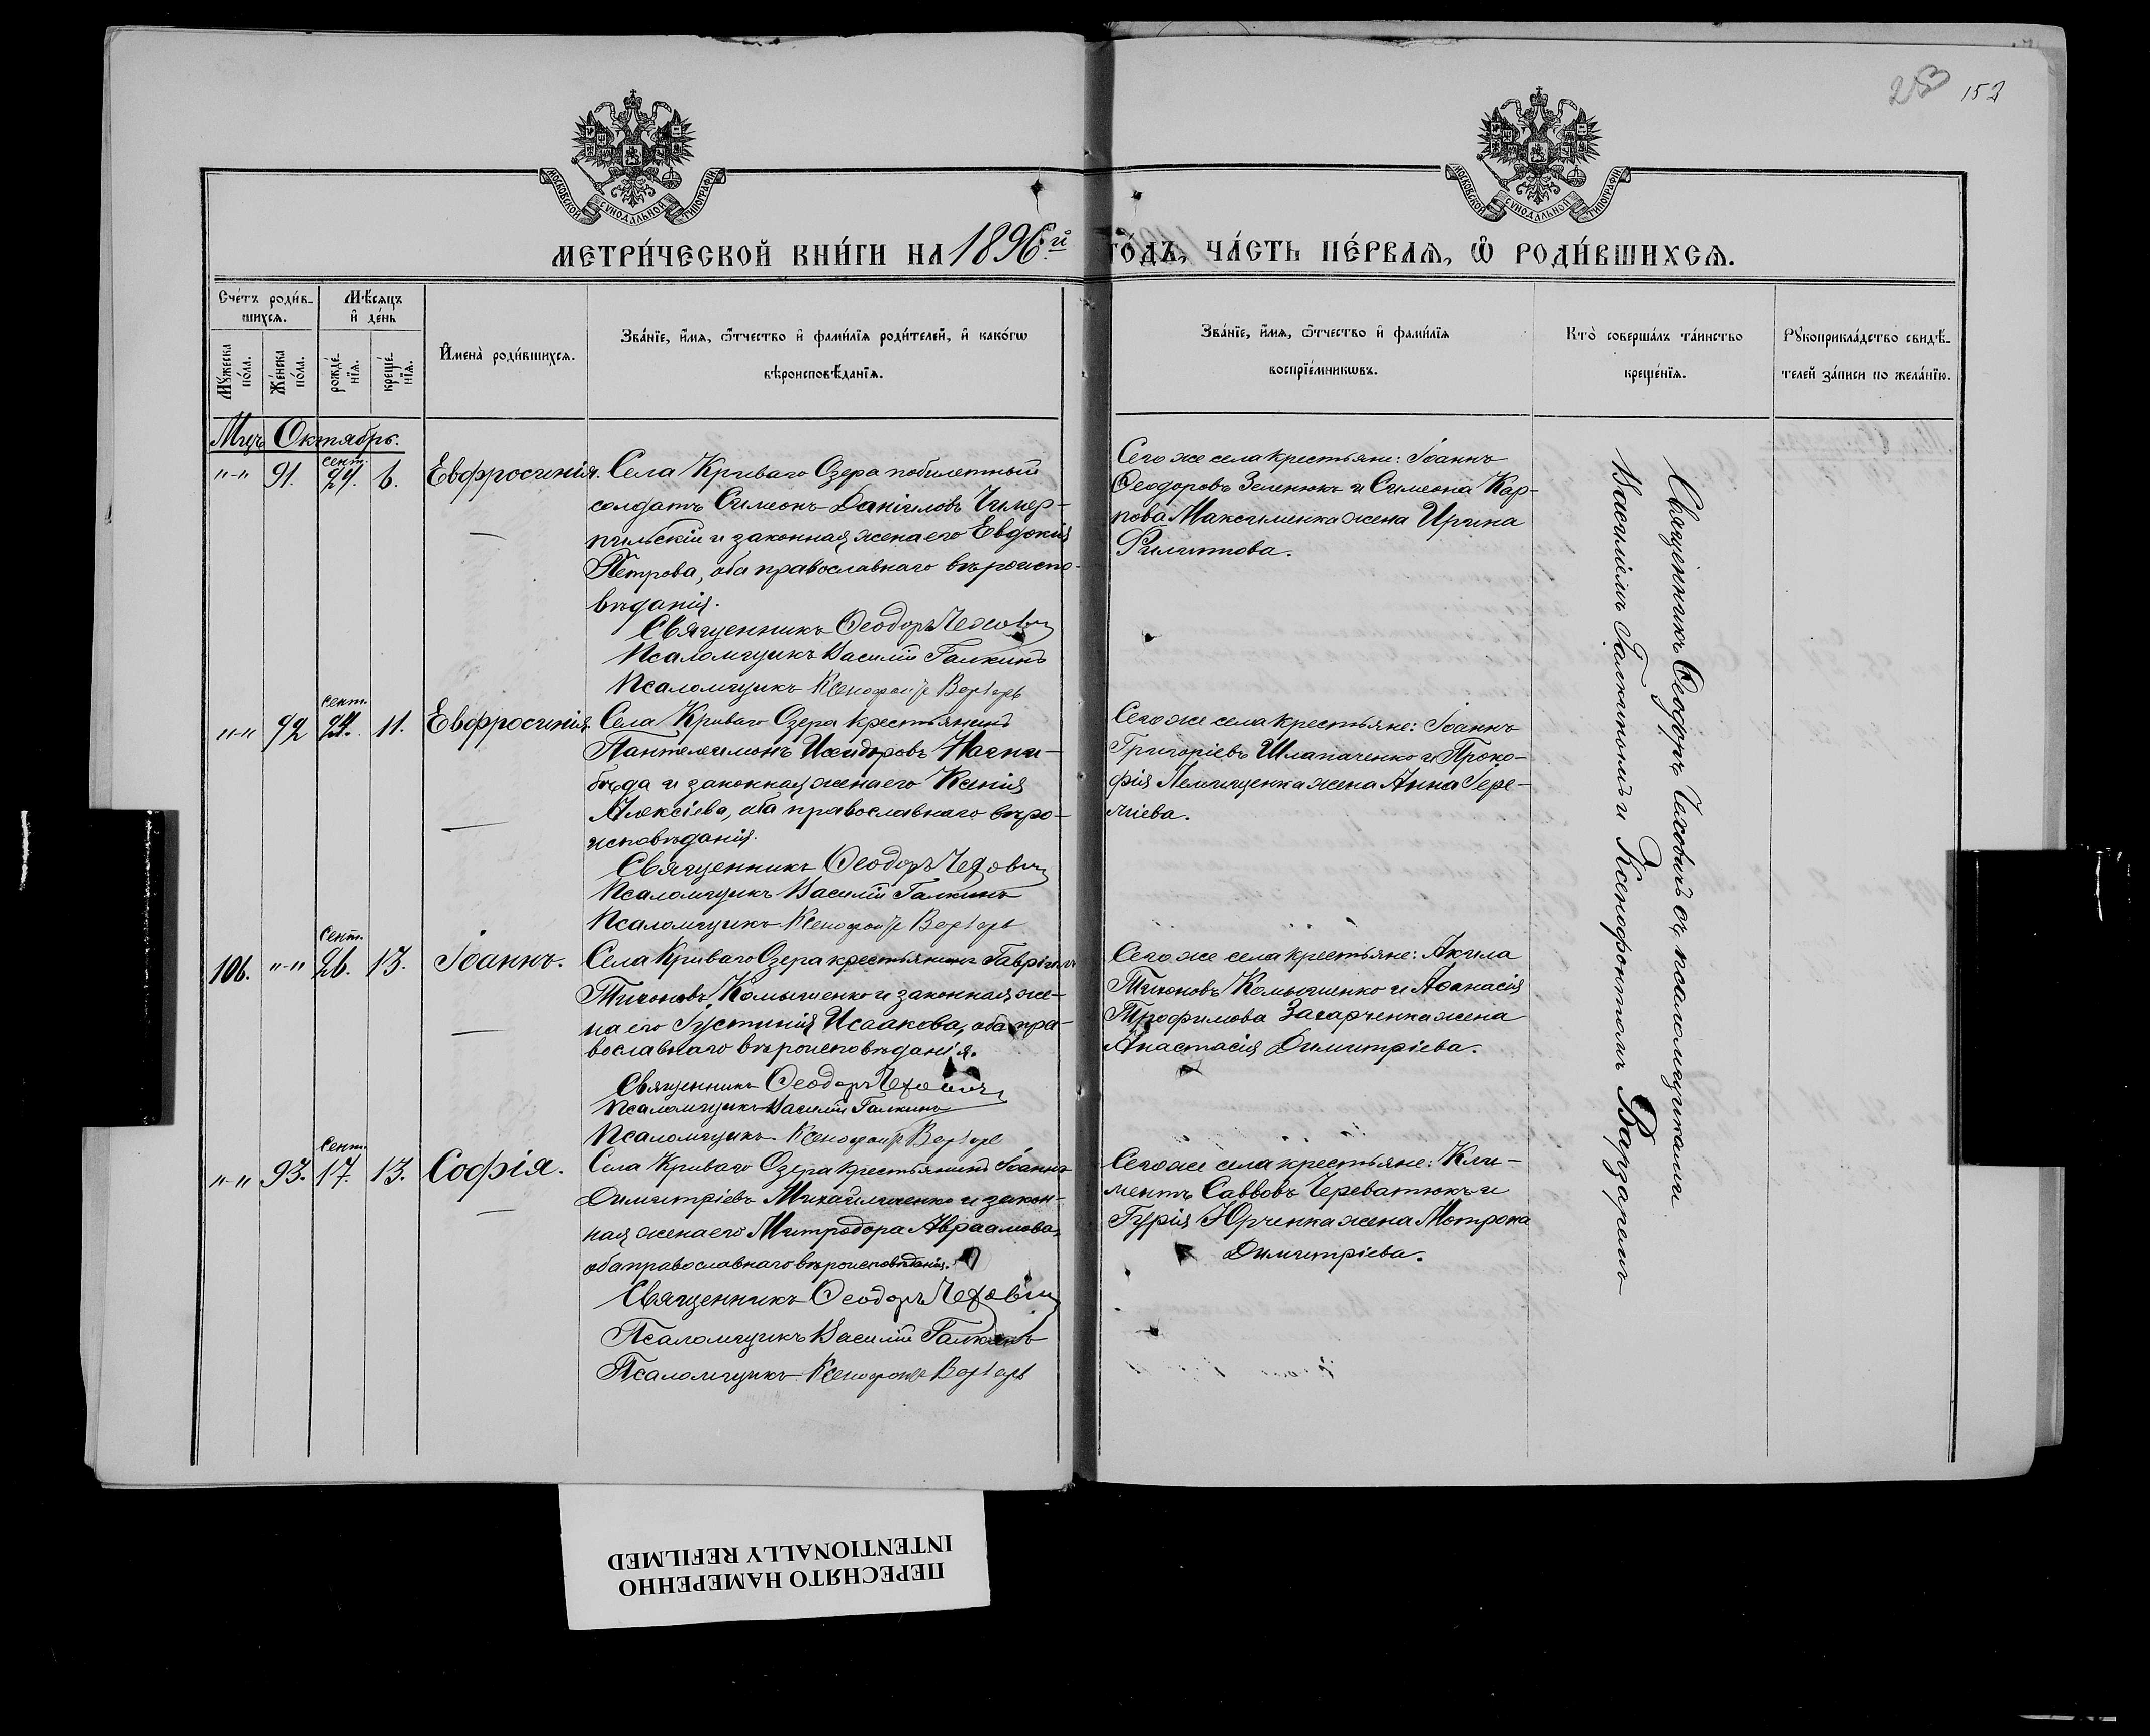 253 152
МОСКОВСКОЙ СѴНОДАЛЬНОЙ ТИПОГРАФІИ
МОСКОВСКОЙ СѴНОДАЛЬНОЙ ТИПОГРАФІИ
МЕТРИ́ЧЕСКОЙ КНИ́ГИ НА 1896й ГО́ДЪ, ЧА́СТЬ ПЕ́РВАѦ, Ѡ҆ РОДИ́ВШИХСѦ.
Сче́тъ роди́в-
шихсѧ.
Мѣ́сѧцъ
и҆ де́нь
Мꙋ́жеска по́ла.
Же́нска по́ла.
рожде́-
нїѧ.
креще́-
нїѧ.
И҆мена̀ роди́вшихсѧ.
Зва́нїе, и҆́мѧ, ѻ҆́тчество и҆ фами́лїѧ роди́телей, и҆ како́гѡ
вѣроисповѣ́данїѧ.
Зва́нїе, и҆́мѧ, ѻ҆́тчество и҆ фами́лїѧ
воспрїе́мникѡвъ.
Кто̀ соверша́лъ та́инство
креще́нїѧ.
Рꙋкоприкла́дство свидѣ́-
телей за́писи по жела́нїю.
Мцъ Октябрь.
"-" 91. сент. 24. 6. Евфросинія.
Села Криваго Озера побилетный
солдатъ Симеонъ Даніиловъ Чимер-
пильскій и законная жена его Евдокія
Петрова, оба православнаго вѣроиспо-
вѣданія.
Священникъ Ѳеодоръ Чеховичъ
Псаломщикъ Василій Галкинъ
Псаломщикъ Ксенофонтъ Варзарь
Сего же села крестьяне: Іоаннъ
Ѳеодоровъ Зеленюкъ и Симеона Кар-
пова Максименка жена Ирина
Филиппова.
"-" 92 сент. 24. 11. Евфросинія.
Села Криваго Озера крестьянинъ
Пантелеимонъ Исидоровъ Нагни-
бѣда и законная жена его Ксенія
Алексіева, оба православнаго вѣро-
исповѣданія.
Священникъ Ѳеодоръ Чеховичъ
Псаломщикъ Василій Галкинъ
Псаломщикъ Ксенофонтъ Варзарь
Сего же села крестьяне: Іоаннъ
Григоріевъ Шлапаченко и Проко-
фія Лемищенка жена Анна Сер-
гіева.
106. "-" сент. 26. 13. Іоаннъ.
Села Криваго Озера крестьянинъ Гавріилъ
Тихоновъ Комышенко и законная же-
на его Іустинія Исаакова, оба пра-
вославнаго вѣроисповѣданія.
Священникъ Ѳеодоръ Чеховичъ
Псаломщикъ Василій Галкинъ
Псаломщикъ Ксенофонтъ Варзарь
Сего же села крестьяне: Акила
Тихоновъ Комышенко и Аѳанасія
Трофимова Захарченка жена
Анастасія Димитріева.
"-" 93. сент. 17. 13. Софія.
Села Криваго Озера крестьянинъ Іоаннъ
Димитріевъ Михайличенко и закон-
ная жена его Митродора Авраамова,
оба православнаго вѣроисповѣданія.
Священникъ Ѳеодоръ Чеховичъ
Псаломщикъ Василій Галкинъ
Псаломщикъ Ксенофонтъ Варзарь
Сего же села крестьяне: Кли-
ментъ Саввовъ Череватюкъ и
Гурія Юрченка жена Мотрона
Димитріева.
Священникъ Ѳеодоръ Чеховичъ съ псаломщиками
Василіемъ Галкинымъ и Ксенофонтомъ Варзаремъ
ПЕРЕСНЯТО НАМЕРЕННО
INTENTIONALLY REFILMED